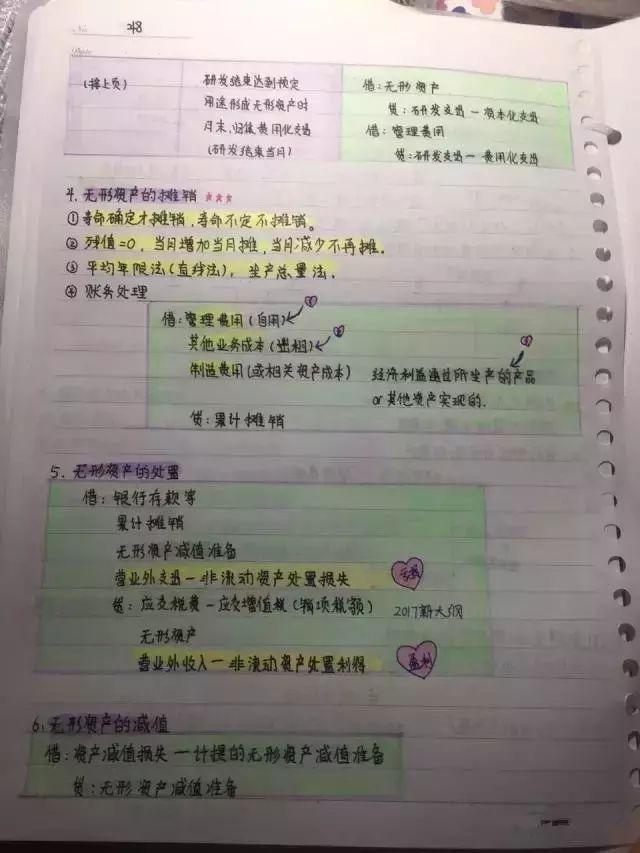 No. 48
Date
(接上页)
研发结束达到预定
用途形成无形资产时
月末,归集费用化支出
(研发结束当月)
借:无形资产
贷:研发支出—资本化支出
借:管理费用
贷:研发支出—费用化支出
4. 无形资产的摊销 ★★★
① 寿命确定才摊销,寿命不定不摊销。
② 残值=0,当月增加当月摊,当月减少不再摊。
③ 平均年限法(直线法),生产总量法.
④ 账务处理
借:管理费用(自用) 1
其他业务成本(出租) 2
制造费用(或相关资产成本) 经济利益通过所生产的产品
or其他资产实现的.
贷:累计摊销
5. 无形资产的处置
借:银行存款等
累计摊销
无形资产减值准备
营业外支出—非流动资产处置损失
贷:应交税费—应交增值税(销项税额) 2017新大纲
无形资产
营业外收入—非流动资产处置利得 盈利
6. 无形资产的减值
借:资产减值损失—计提的无形资产减值准备
贷:无形资产减值准备